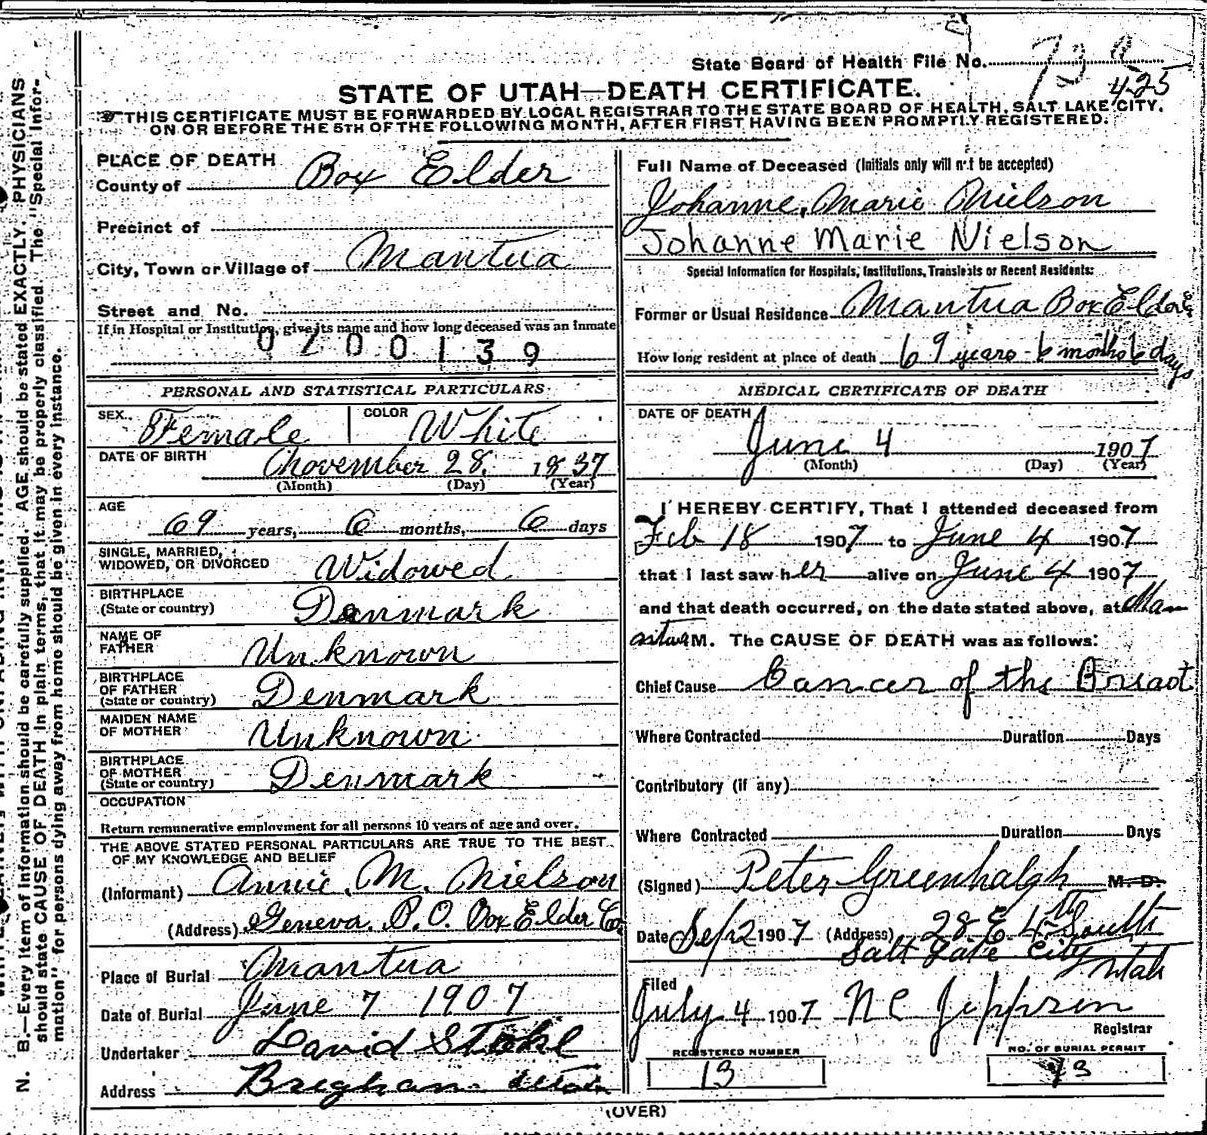 State Board of Health File No. 73 a
425
STATE OF UTAH—DEATH CERTIFICATE.
THIS CERTIFICATE MUST BE FORWARDED BY LOCAL REGISTRAR TO THE STATE BOARD OF HEALTH, SALT LAKE CITY,
ON OR BEFORE THE 5TH OF THE FOLLOWING MONTH, AFTER FIRST HAVING BEEN PROMPTLY REGISTERED.
PLACE OF DEATH
County of Box Elder
Precinct of
City, Town or Village of Mantua
Street and No.
If in Hospital or Institution, give its name and how long deceased was an inmate
0700139
PERSONAL AND STATISTICAL PARTICULARS
SEX Female COLOR White
DATE OF BIRTH November 28 1837
(Month) (Day) (Year)
AGE
69 years, 6 months, 6 days
SINGLE, MARRIED,
WIDOWED, OR DIVORCED Widowed
BIRTHPLACE
(State or country) Denmark
NAME OF
FATHER Unknown
BIRTHPLACE
OF FATHER
(State or country) Denmark
MAIDEN NAME
OF MOTHER Unknown
BIRTHPLACE
OF MOTHER
(State or country) Denmark
OCCUPATION
Return remunerative employment for all persons 10 years of age and over.
THE ABOVE STATED PERSONAL PARTICULARS ARE TRUE TO THE BEST
OF MY KNOWLEDGE AND BELIEF
(Informant) Annie M. Nielson
(Address) Geneva P.O. Box Elder Co.
Place of Burial Mantua
Date of Burial June 7 1907
Undertaker David Stohl
Address Brigham Utah
Full Name of Deceased (Initials only will not be accepted)
Johanne Marie Nielson
Johanne Marie Nielson
Special Information for Hospitals, Institutions, Transients or Recent Residents:
Former or Usual Residence Mantua Box Elder Co
How long resident at place of death 69 years - 6 months 6 days
MEDICAL CERTIFICATE OF DEATH
DATE OF DEATH
June 4 1907
(Month) (Day) (Year)
I HEREBY CERTIFY, That I attended deceased from
Feb 18 1907 to June 4 1907
that I last saw her alive on June 4 1907
and that death occurred, on the date stated above, at Man
M. The CAUSE OF DEATH was as follows:
Chief Cause Cancer of the Breast
Where Contracted Duration Days
Contributory (if any)
Where Contracted Duration Days
(Signed) Peter Greenhalgh M. D.
Date Sep 2 1907 (Address) 28 E 4th South
Salt Lake City Utah
Filed
July 4 1907 N C Jeppsen
Registrar
REGISTERED NUMBER
13
NO. OF BURIAL PERMIT
13
(OVER)
N. B.—Every item of information should be carefully supplied. AGE should be stated EXACTLY. PHYSICIANS
should state CAUSE OF DEATH in plain terms, that it may be properly classified. The "Special Infor-
mation" for persons dying away from home should be given in every instance.